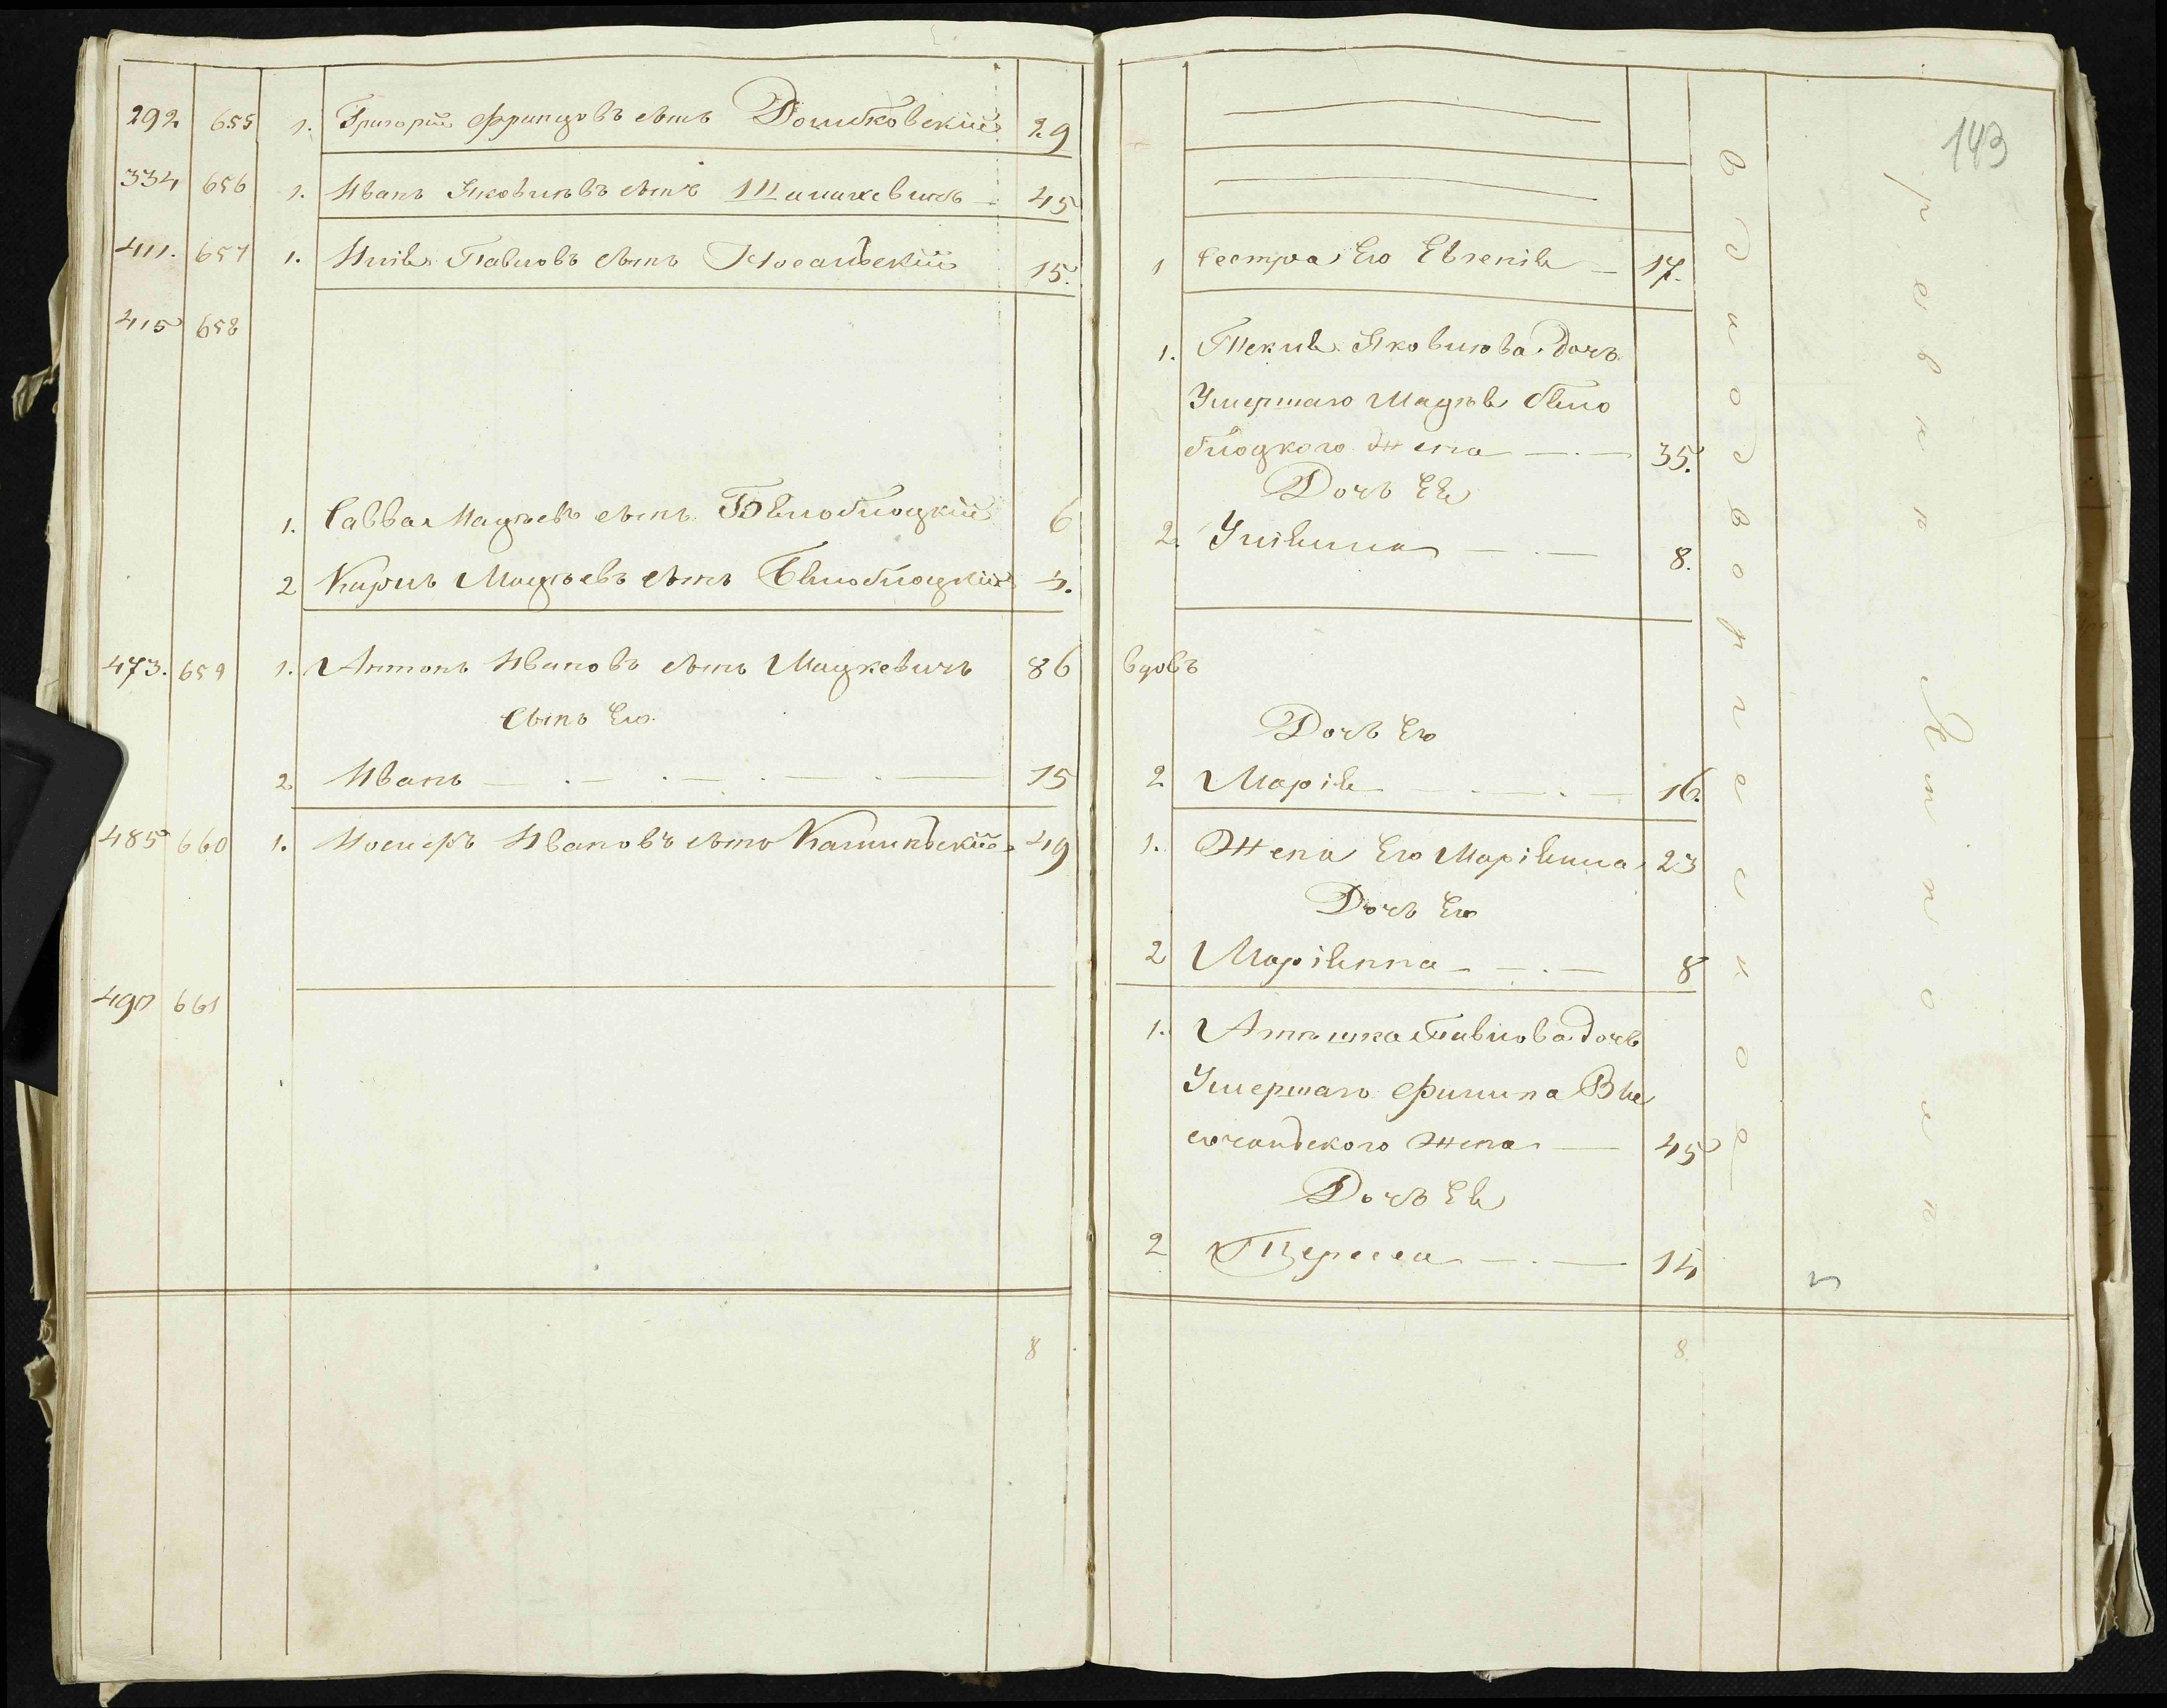 292 655 1. Григорий Францовъ сынъ Домбковскій 29
334 656 1. Иванъ Яковлевъ сынъ Шашкевичъ 45
411. 657 1. Илія Павловъ сынъ 15.
415 658
1. Савва Мацѣевъ сынъ Бѣлоблоцкій 6
2 Кирилъ Мацѣевъ сынъ Бѣлоблоцкій 3.
473. 659 1. Антонъ Ивановъ сынъ Мацкевичъ 86
сынъ Его
2 Иванъ 15
485 660 1. Иосифъ Ивановъ сынъ Калиновскій 49
490 661
8
143
1 Сестра Его Евгенія 17.
1. Текля Яковлева дочь
Умершаго Мацѣя Бѣло
блоцкого Жена 35.
Дочь Ея
2. Уліяна 8.
вдовъ
Дочь Его
2 Марія 16.
1. Жена Его Маріянна 23
Дочь Его
2 Маріянна 8
1. Павлова дочь
Умершаго Филипа Вы
сочанского Жена 45
Дочь Ея
2 Тереса 14
8.
в однодворческое